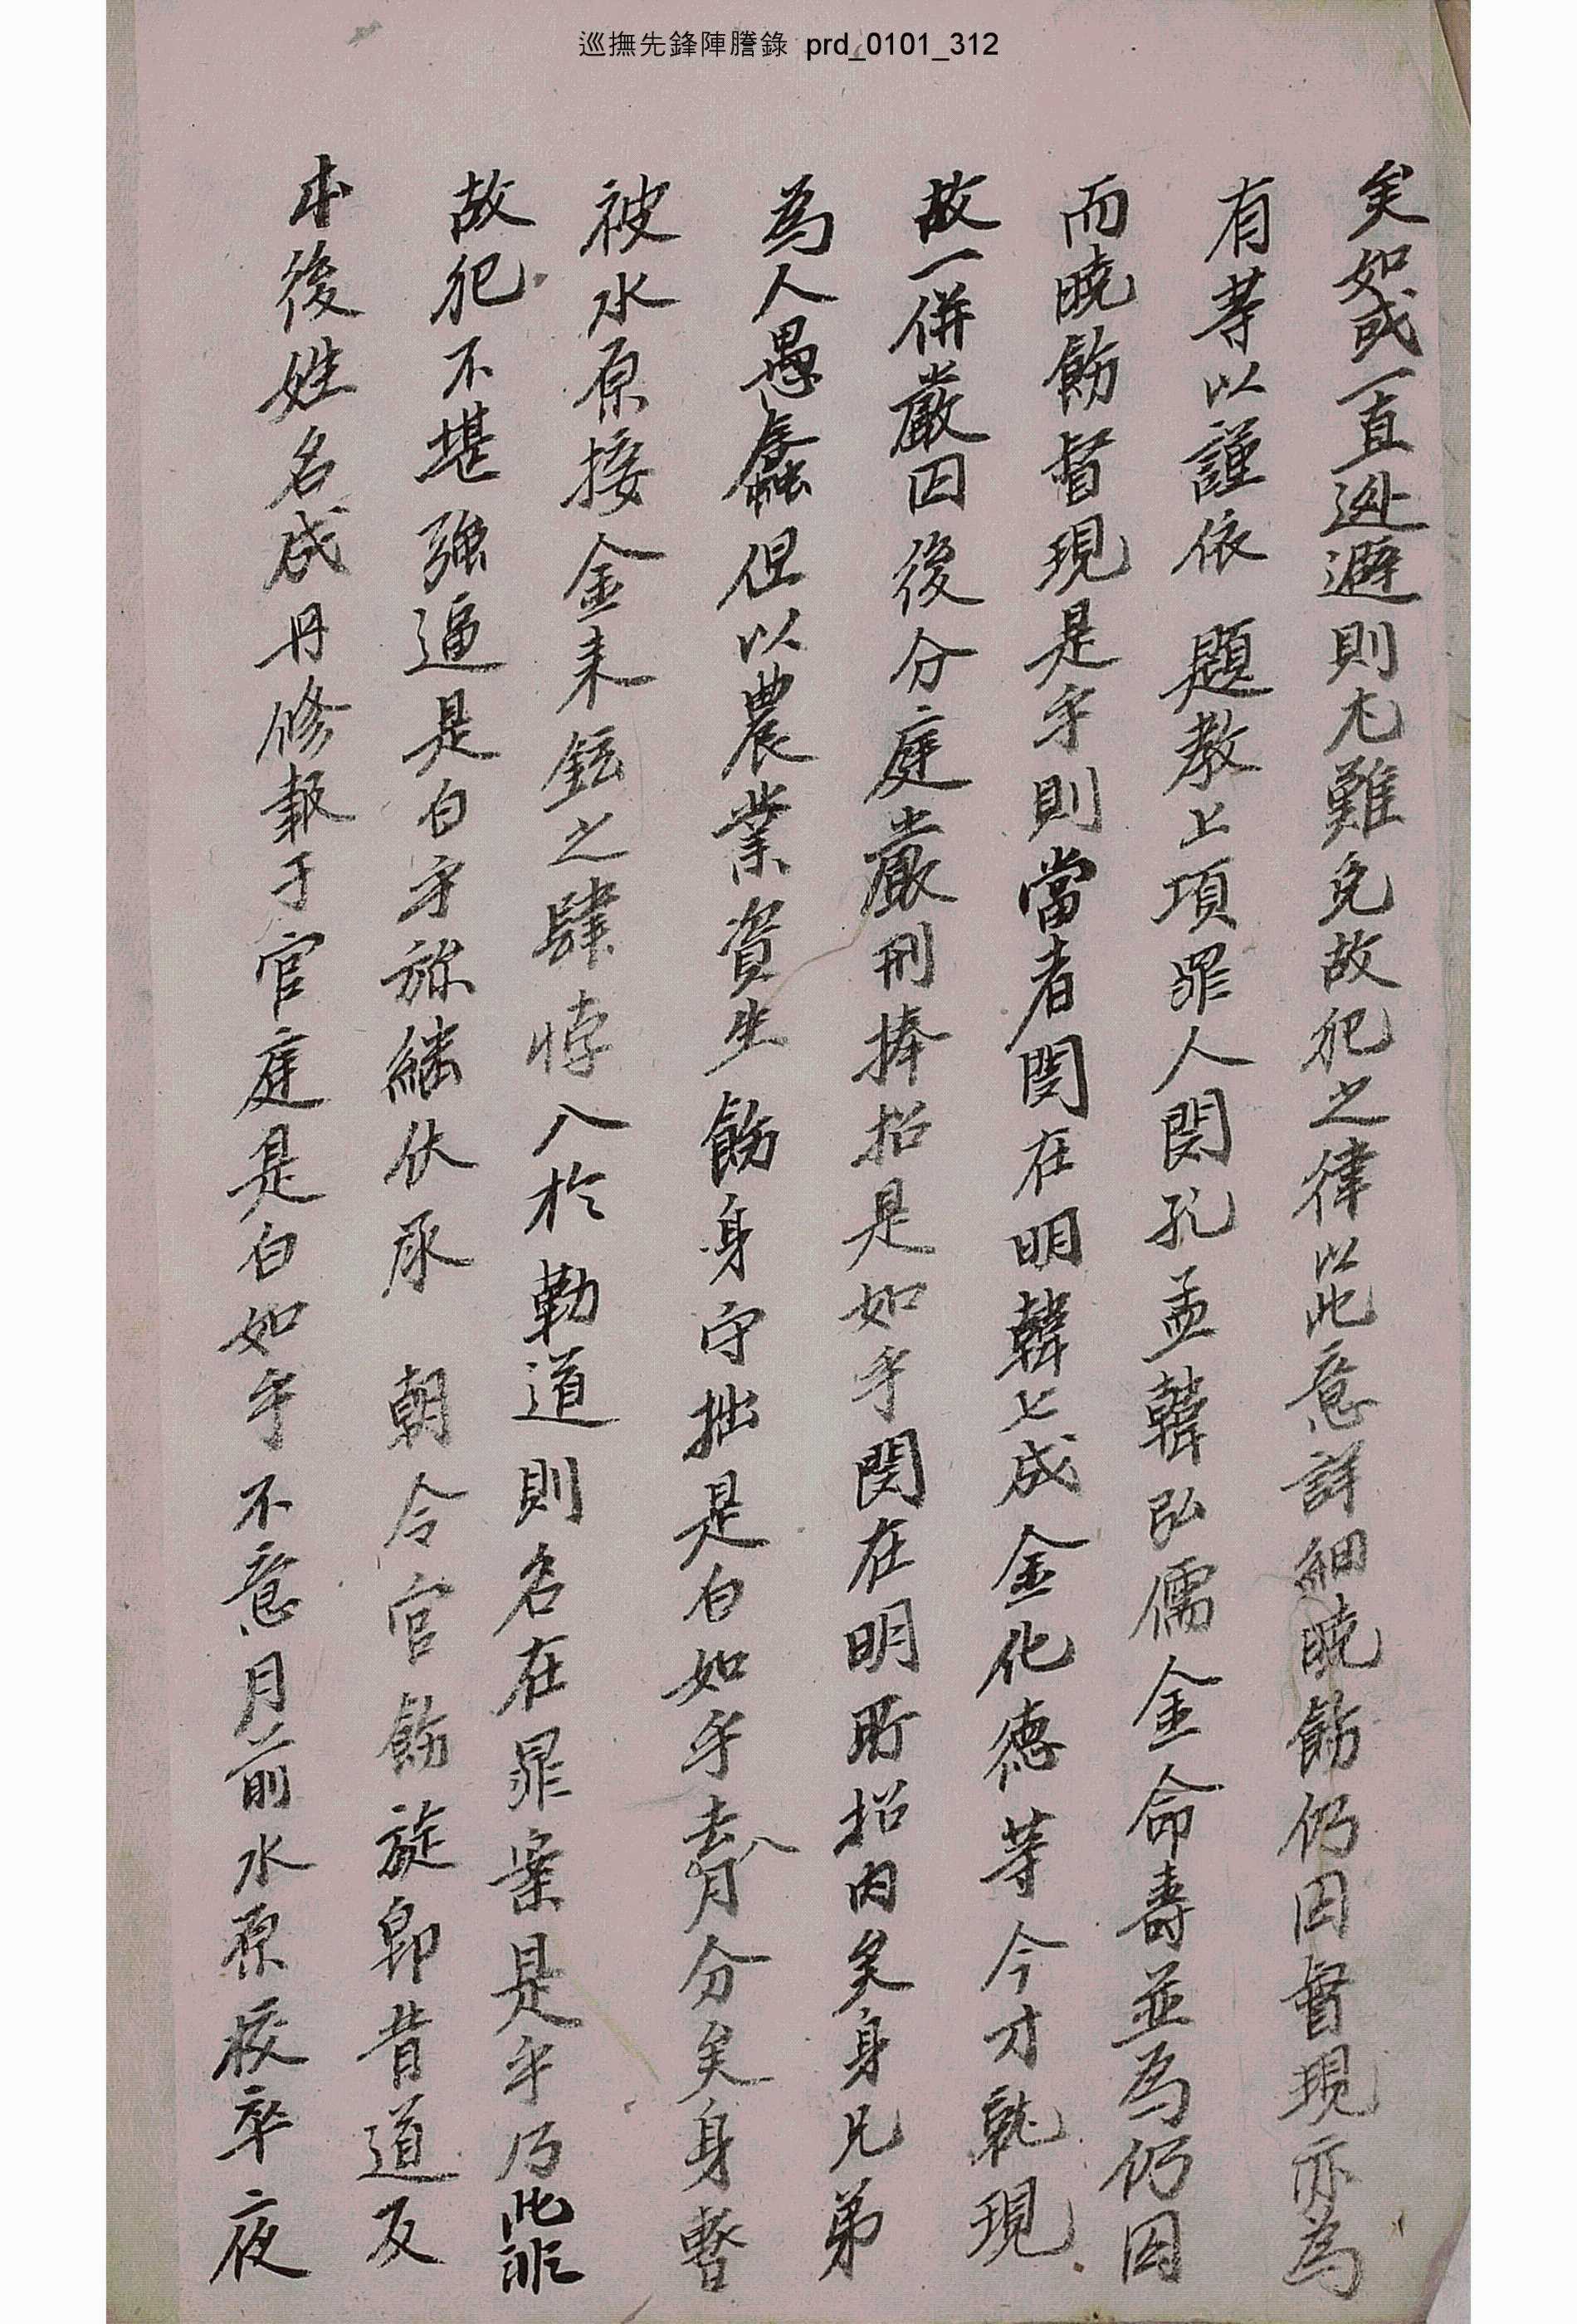 巡撫先鋒陣謄錄 prd_0101_312
矣如或一直逊避則尤難免故犯之律以此意詳細曉飭仍因督現亦為
有等以謹依 題教上項罪人閔孔孟韓弘儒金命壽並為仍因
而曉飭督現是乎則當者閔在明韓七成金化德等今才就現
故一併嚴囚後分庭嚴刑捧招是如乎閔在明所招內矣身兄弟
為人愚蠢但以農業資生飭身守拙是白如乎去八月分矣身暫
被水原接金来鉉之肆悖入於勒道則名在罪案是乎乃此非
故犯不堪強逼是白乎旀繼伏承 朝令官飭旋即背道反
本後姓名成冊修報于官庭是白如乎不意月前水原校卒夜